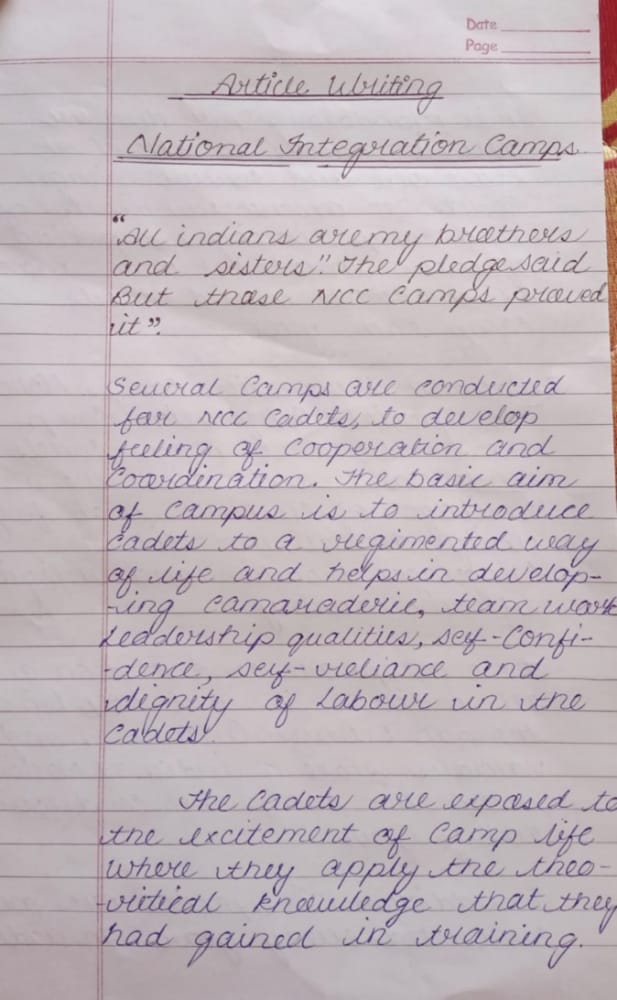 Date
Page
Article Writing
National Integration Camps
"All indians are my brothers
and sisters". The pledge said
But those NCC Camps proved
it".
Several Camps are conducted
for NCC Cadets, to develop
feeling of Cooperation and
Coordination. The basic aim
of Campus is to introduce
Cadets to a regimented way
of life and helps in develop-
-ing camaraderie, team work
Leadership qualities, self-Confi-
-dence, self-reliance and
dignity of Labour in the
Cadets.
The Cadets are exposed to
the excitement of Camp life
where they apply the theo-
-ritical knowledge that they
had gained in training.